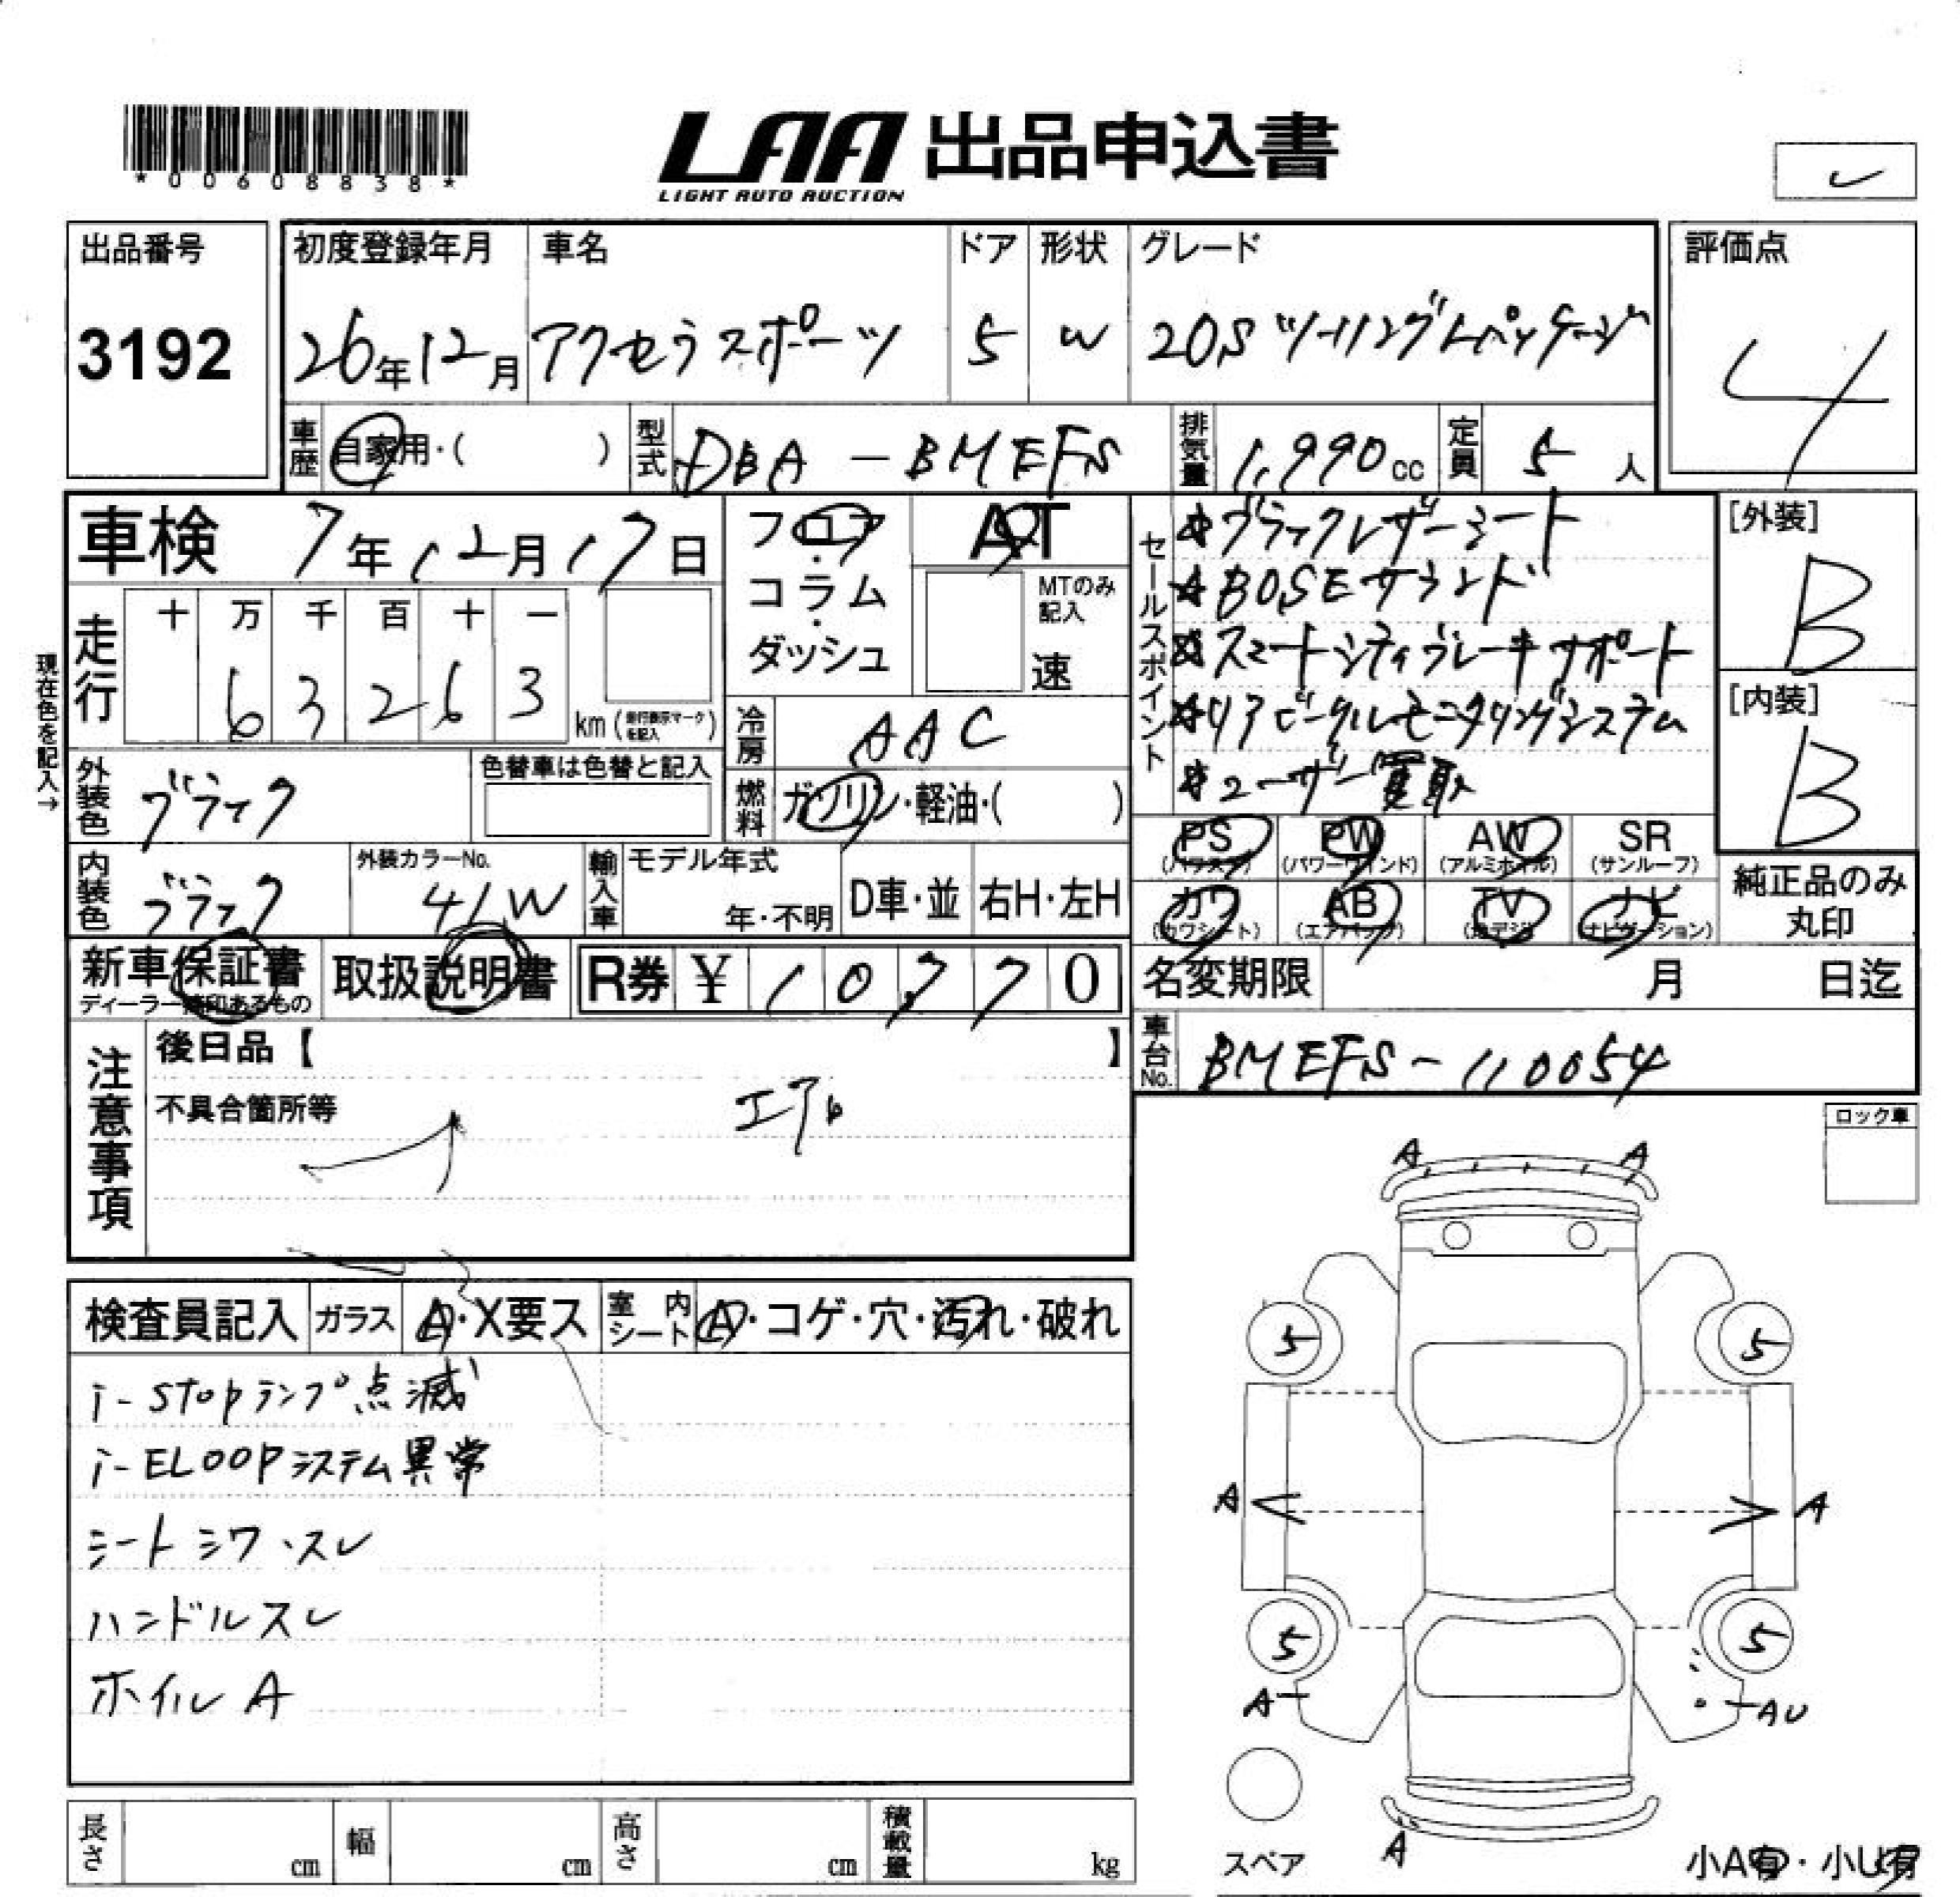 *00608838*
LAA 出品申込書
LIGHT AUTO AUCTION
出品番号
3192
初度登録年月 車名 ドア 形状 グレード 評価点
26年12月 アクセラスポーツ 5 W 20Sツーリング Lパッケージ 4
車歴 自家用・( ) 型式 DBA-BMEFS 排気量 1,990cc 定員 5人
車検 7年12月17日
フロア・コラム・ダッシュ
AT
MTのみ記入
速
セールスポイント
☆ブラックレザーシート
☆BOSEサウンド
☆スマートシティブレーキサポート
☆リアビークルモニタリングシステム
☆ユーザー買取
[外装]
B
[内装]
B
現在色を記入→
走行 十 万 千 百 十 一
6 3 2 6 3 km (走行表示マークを記入)
冷房 AAC
外装色 ブラック 色替車は色替と記入
燃料 ガソリン・軽油・( )
PS (パワステ) PW (パワーウインド) AW (アルミホイル) SR (サンルーフ)
カワ (カワシート) AB (エアバック) TV (地デジ) ナビ (ナビゲーション)
純正品のみ丸印
内装色 ブラック 外装カラーNo. 41W 輸入車 モデル年式 年・不明 D車・並 右H・左H
新車保証書 ディーラー捺印あるもの 取扱説明書 R券 ¥ 10,770
名変期限 月 日迄
車台No. BMEFS-110054
注意事項
後日品【 】
不具合箇所等
エアロ
ロック車
検査員記入 ガラス A・X要ス 室内シート A・コゲ・穴・汚れ・破れ
i-stopランプ点滅
i-ELOOPシステム異常
シートシワ・スレ
ハンドルスレ
ホイルA
A A
5 5
A A
5 5
A AU
A
スペア
小A有・小U有
長さ cm 幅 cm 高さ cm 積載量 kg